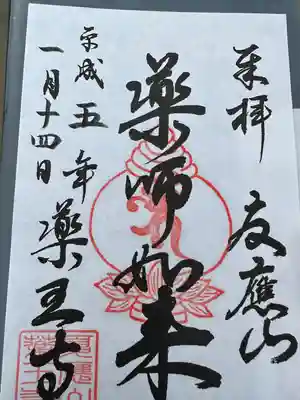 奉拝
應山
藥師如来
平成五年
藥王寺
一月十四日